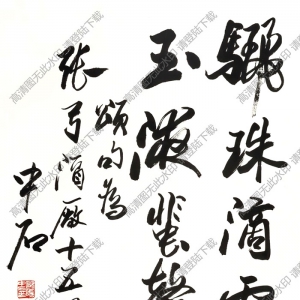 骊珠滴露
玉液蜚声
颂句为
张弓酒厂十五周
中石
高清图无此水印 请登陆下载